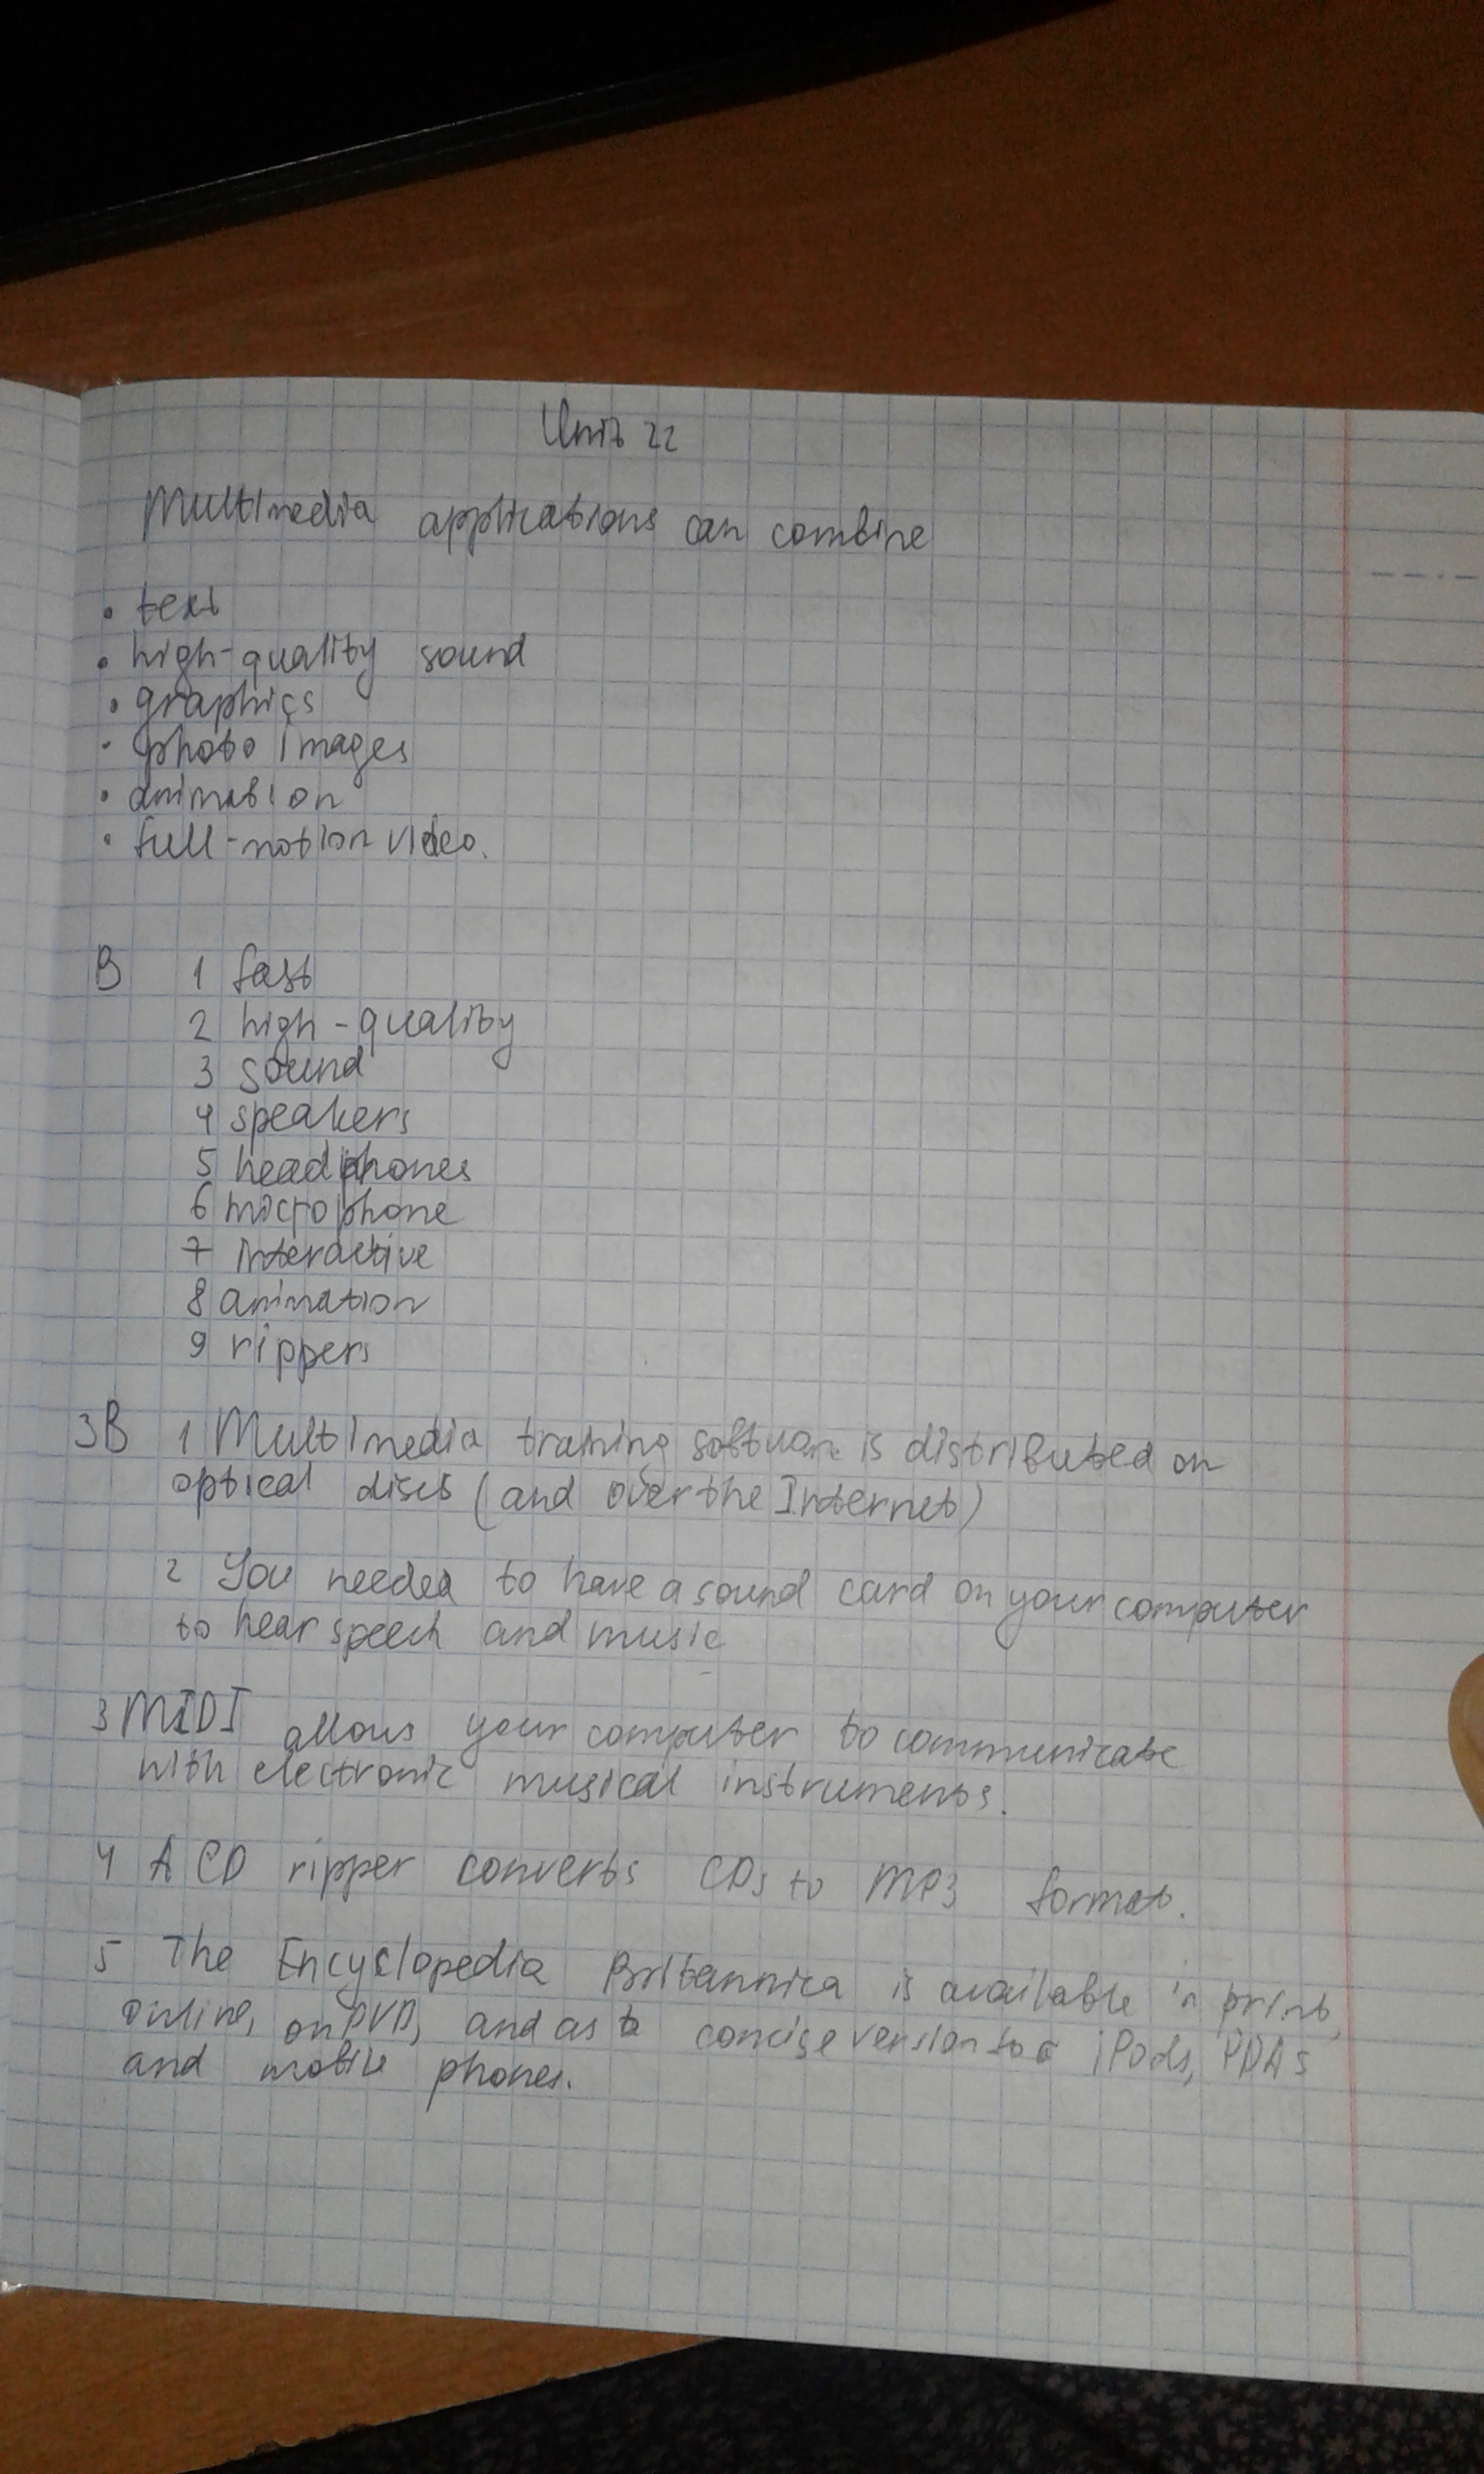 Unit 22
Multimedia applications can combine
• text
• high-quality sound
• graphics
• photo images
• animation
• full-motion video.
B 1 fast
2 high-quality
3 sound
4 speakers
5 headphones
6 microphone
7 interactive
8 animation
9 rippers
3B 1 Multimedia training software is distributed on
optical discs (and over the Internet)
2 You needed to have a sound card on your computer
to hear speech and music
3 MIDI allows your computer to communicate
with electronic musical instruments.
4 A CD ripper converts CDs to MP3 format.
5 The Encyclopedia Britannica is available in print,
online, on DVD, and as a concise version to iPods, PDAs
and mobile phones.